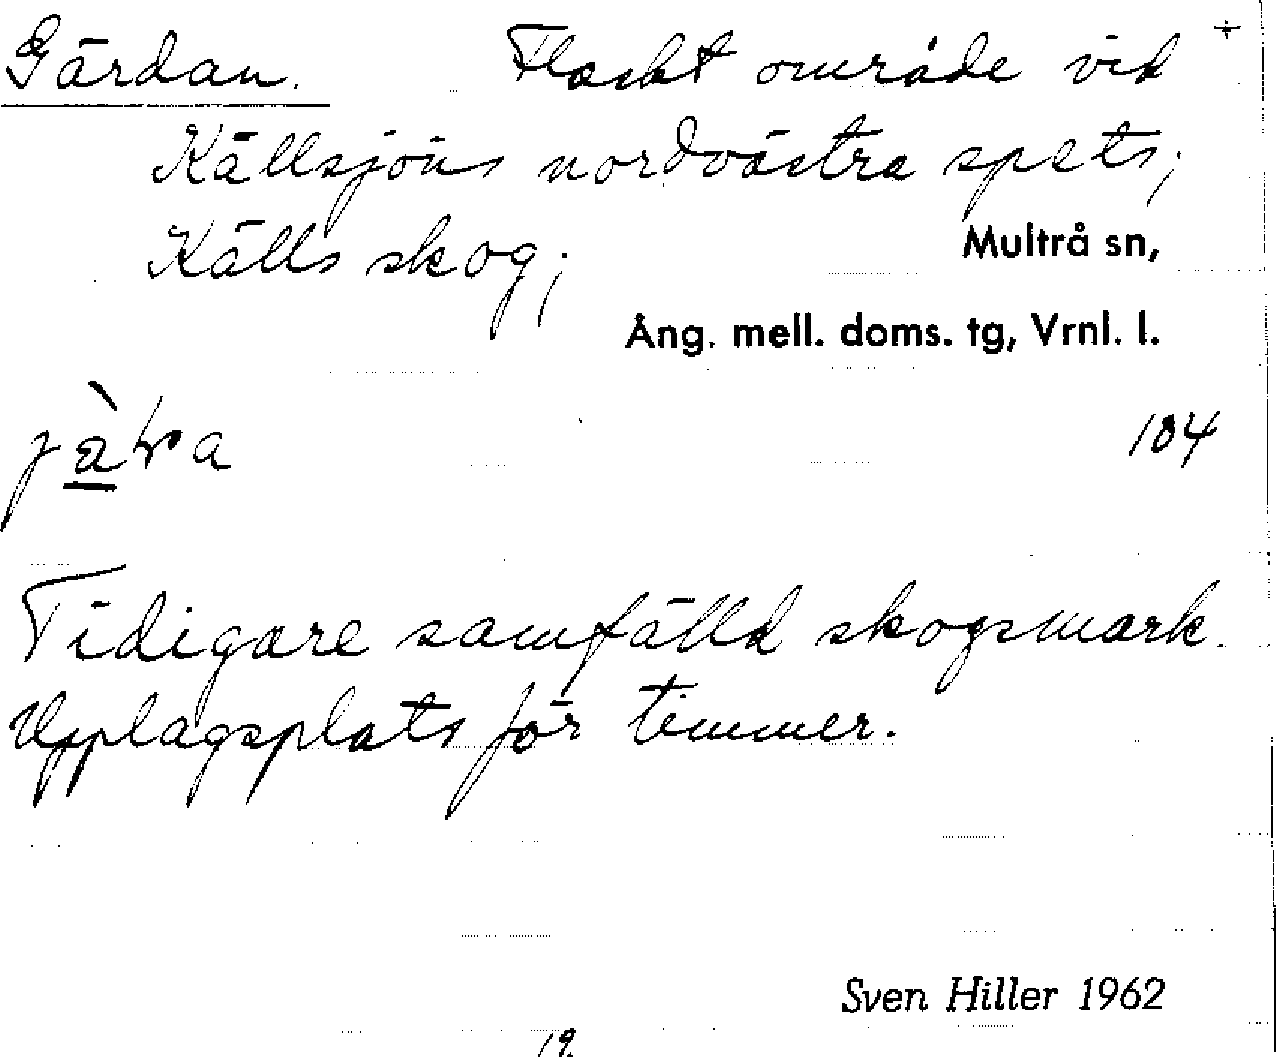 Gärdan. Flackt område vid +
Källsjöns nordvästra spets;
Källs skog; Multrå sn,
Ång. mell. doms. tg, Vrnl. l.
104
Tidigare samfälld skogsmark.
Upplagsplats för timmer.
Sven Hiller 1962
19